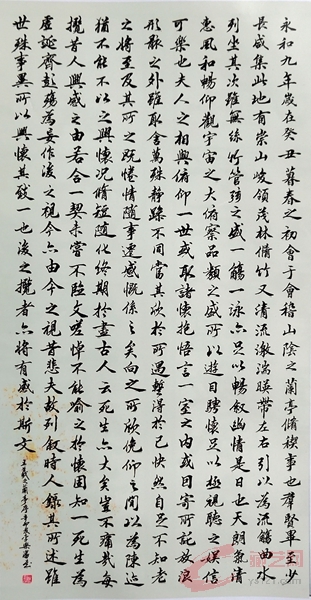 永和九年歲在癸丑暮春之初會于會稽山陰之蘭亭脩稧事也羣賢畢至少
長咸集此地有崇山峻領茂林脩竹又清流激湍暎帶左右引以為流觴曲水
列坐其次雖無絲竹管弦之盛一觴一詠亦足以暢叙幽情是日也天朗氣清
惠風和暢仰觀宇宙之大俯察品類之盛所以遊目騁懷足以極視聽之娛信
可樂也夫人之相與俯仰一世或取諸懷抱悟言一室之內或因寄所託放浪
形骸之外雖取舍萬殊静躁不同當其欣於所遇暫得於己快然自足不知老
之將至及其所之既惓情隨事遷感慨係之矣向之所欣俛仰之間以為陳迹
猶不能不以之興懷況脩短隨化終期於盡古人云死生亦大矣豈不痛哉每
攬昔人興感之由若合一契未嘗不臨文嗟悼不能喻之於懷固知一死生為
虛誕齊彭殤為妄作後之視今亦由今之視昔悲夫故列叙時人錄其所述雖
世殊事異所以興懷其致一也後之攬者亦將有感於斯文
王羲之蘭亭序